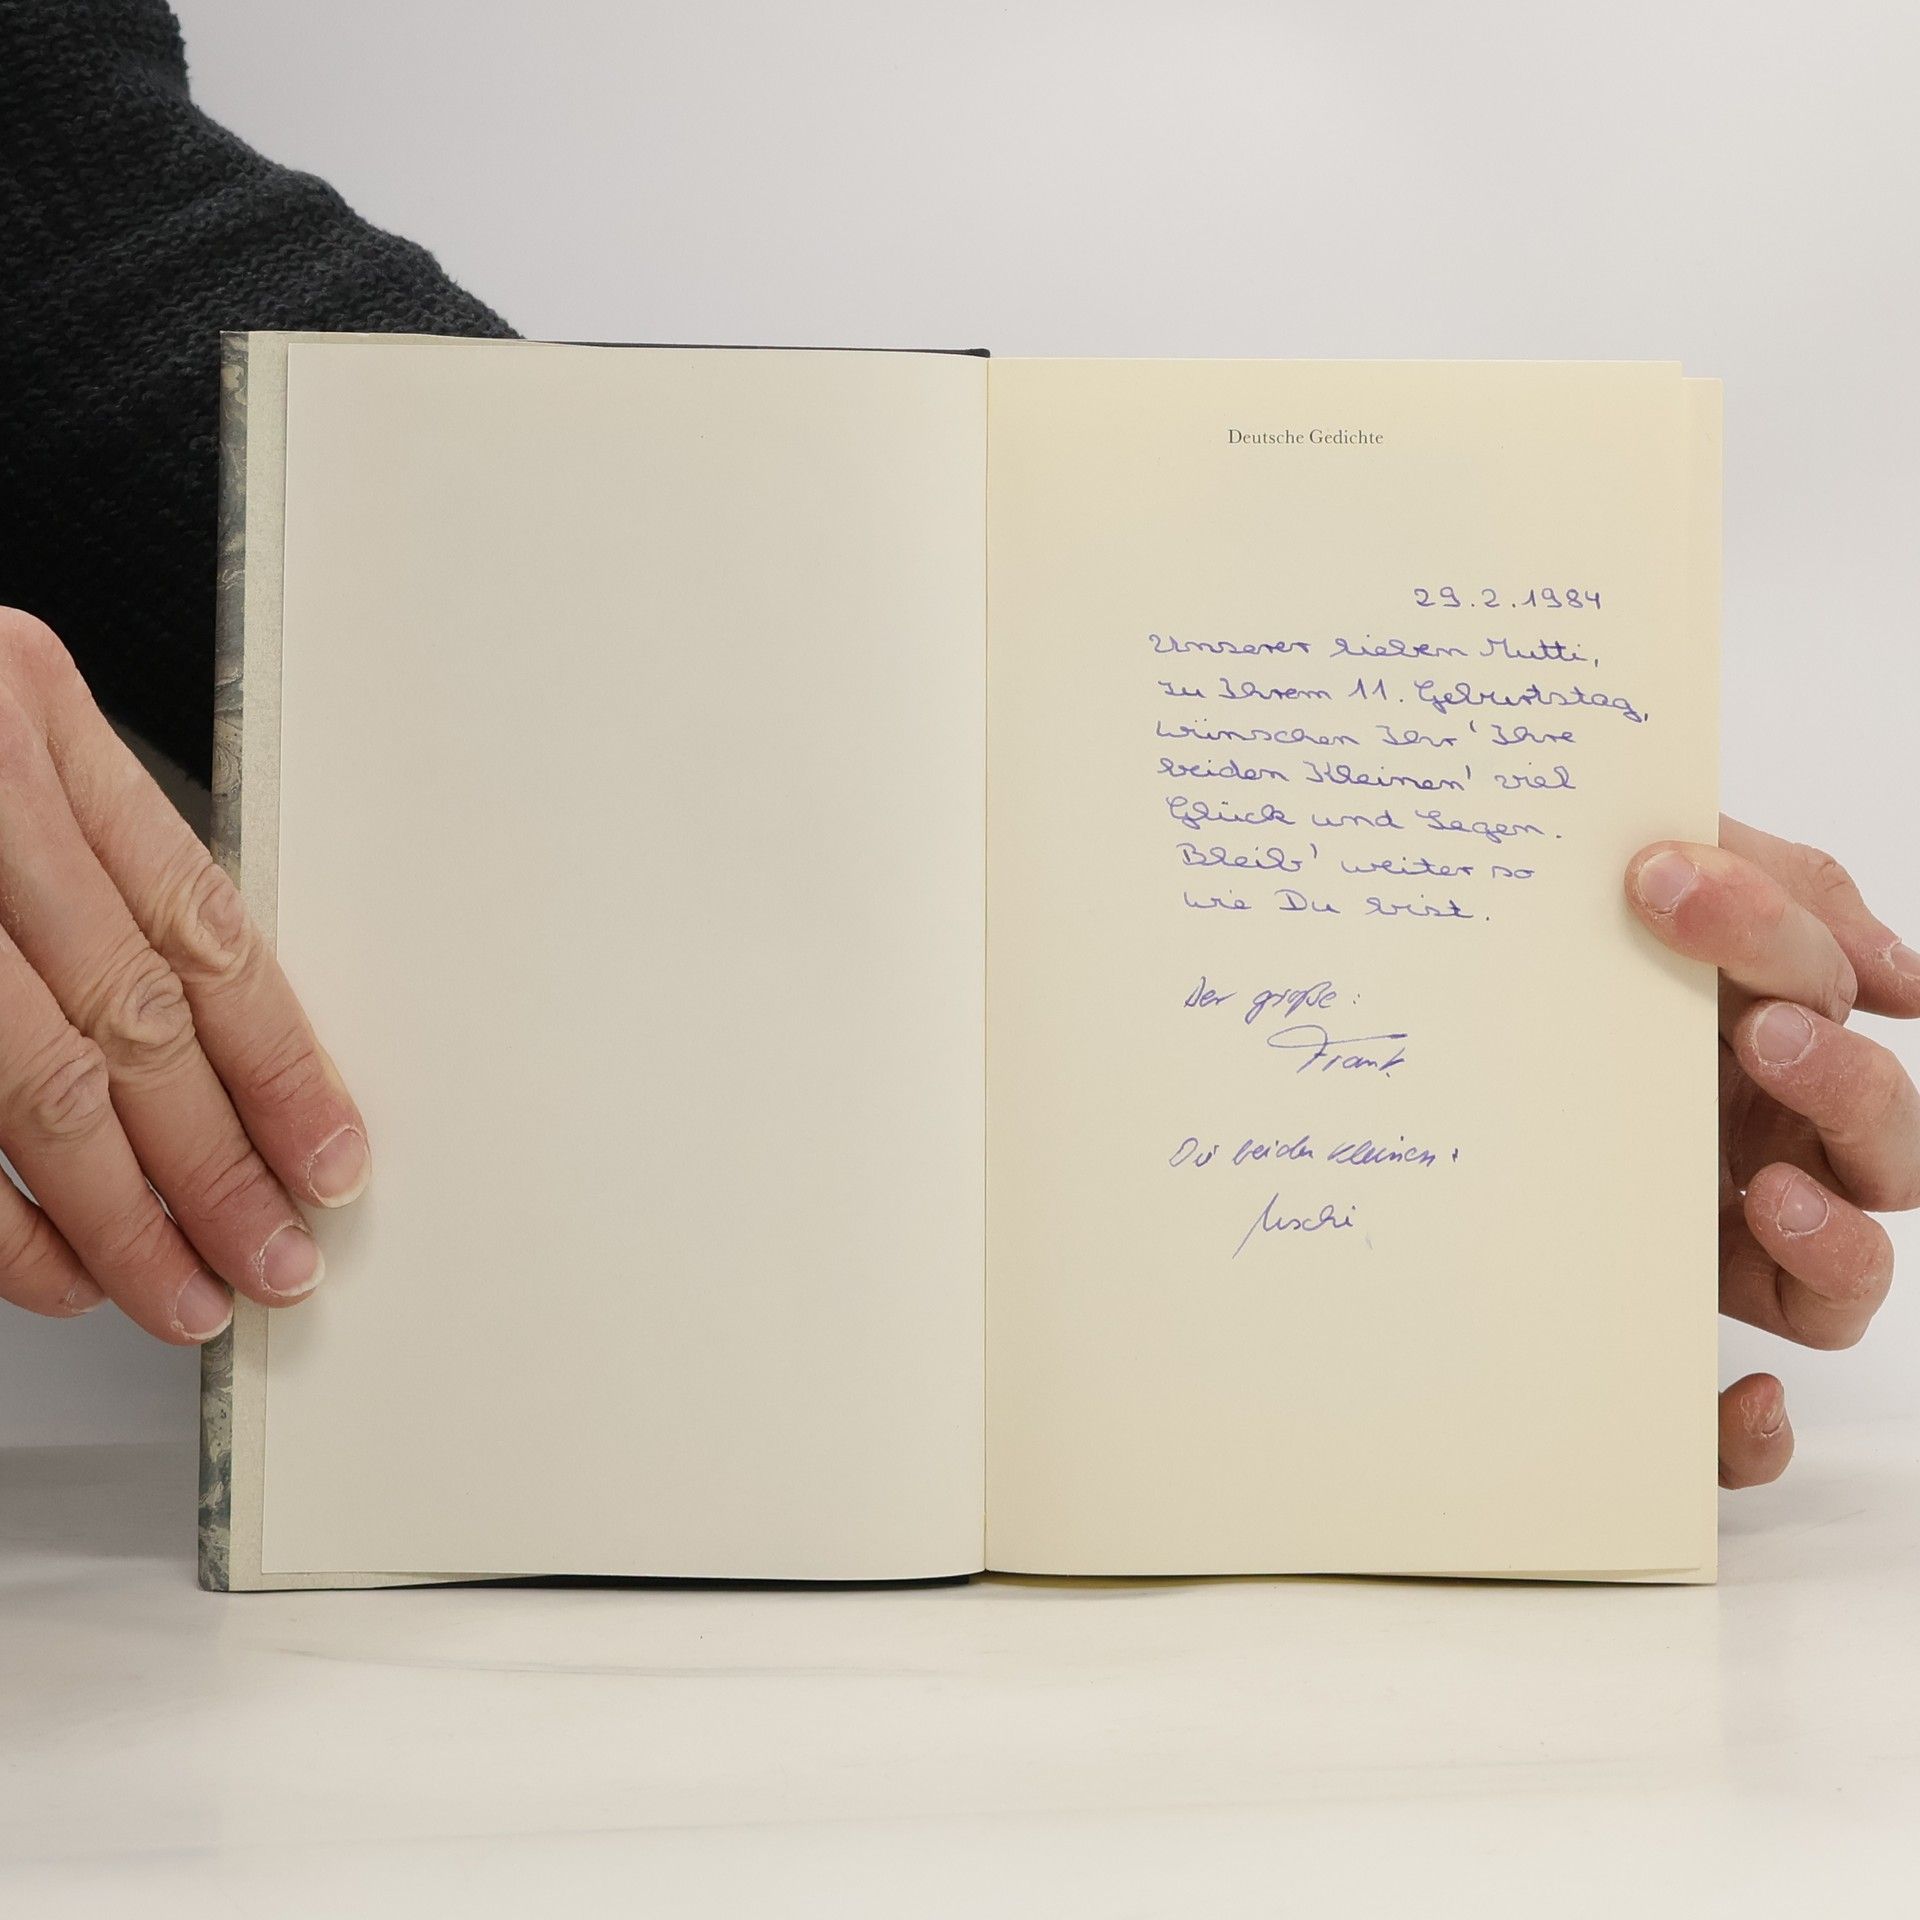 Deutsche Gedichte
29.2.1984
Unserer lieben Mutti,
zu Ihrem 11. Geburtstag,
wünschen Ihr 'Ihre
beiden Kleinen' viel
Glück und Segen.
Bleib' weiter so
wie Du bist.
Der große:
Frank
Die beiden Kleinen:
Uschi